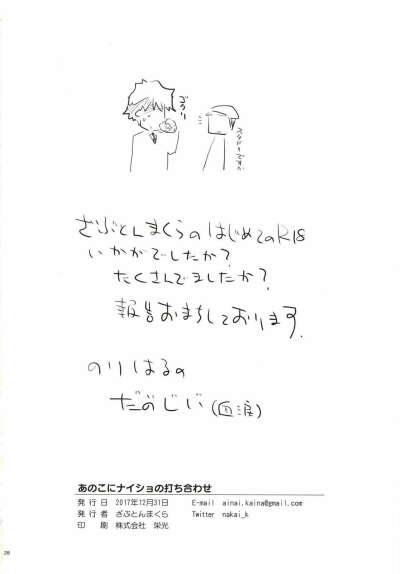 ざぶとんまくらのはじめてのR18
いかがでしたか?
たくさんでましたか?
報告おまちしております.
のりはるの
だのじい(血涙)
あのこにナイショの打ち合わせ
発行日 2017年12月31日 E-mail ainai.kaina@gmail.com
発行者 ざぶとんまくら Twitter nakai_k
印刷 株式会社 栄光
28